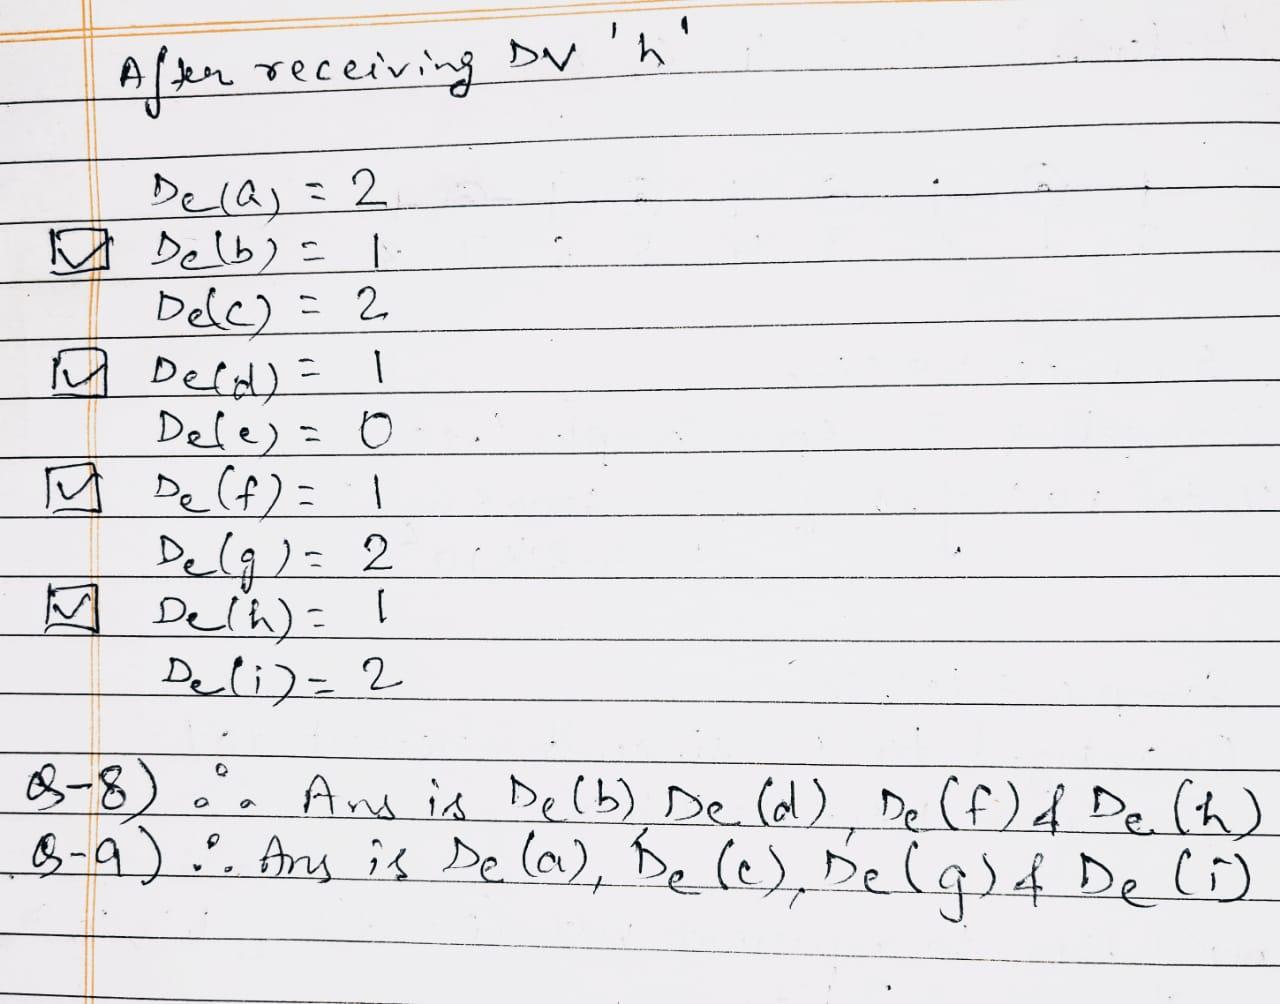 After receiving DV 'h'
De(a) = 2
☑ De(b) = 1
De(c) = 2
☑ De(d) = 1
De(e) = 0
☑ De(f) = 1
De(g) = 2
☑ De(h) = 1
De(i) = 2
Q-8) ∴ Ans is De(b), De(d), De(f) & De(h)
Q-9) ∴ Ans is De(a), De(c), De(g) & De(i)